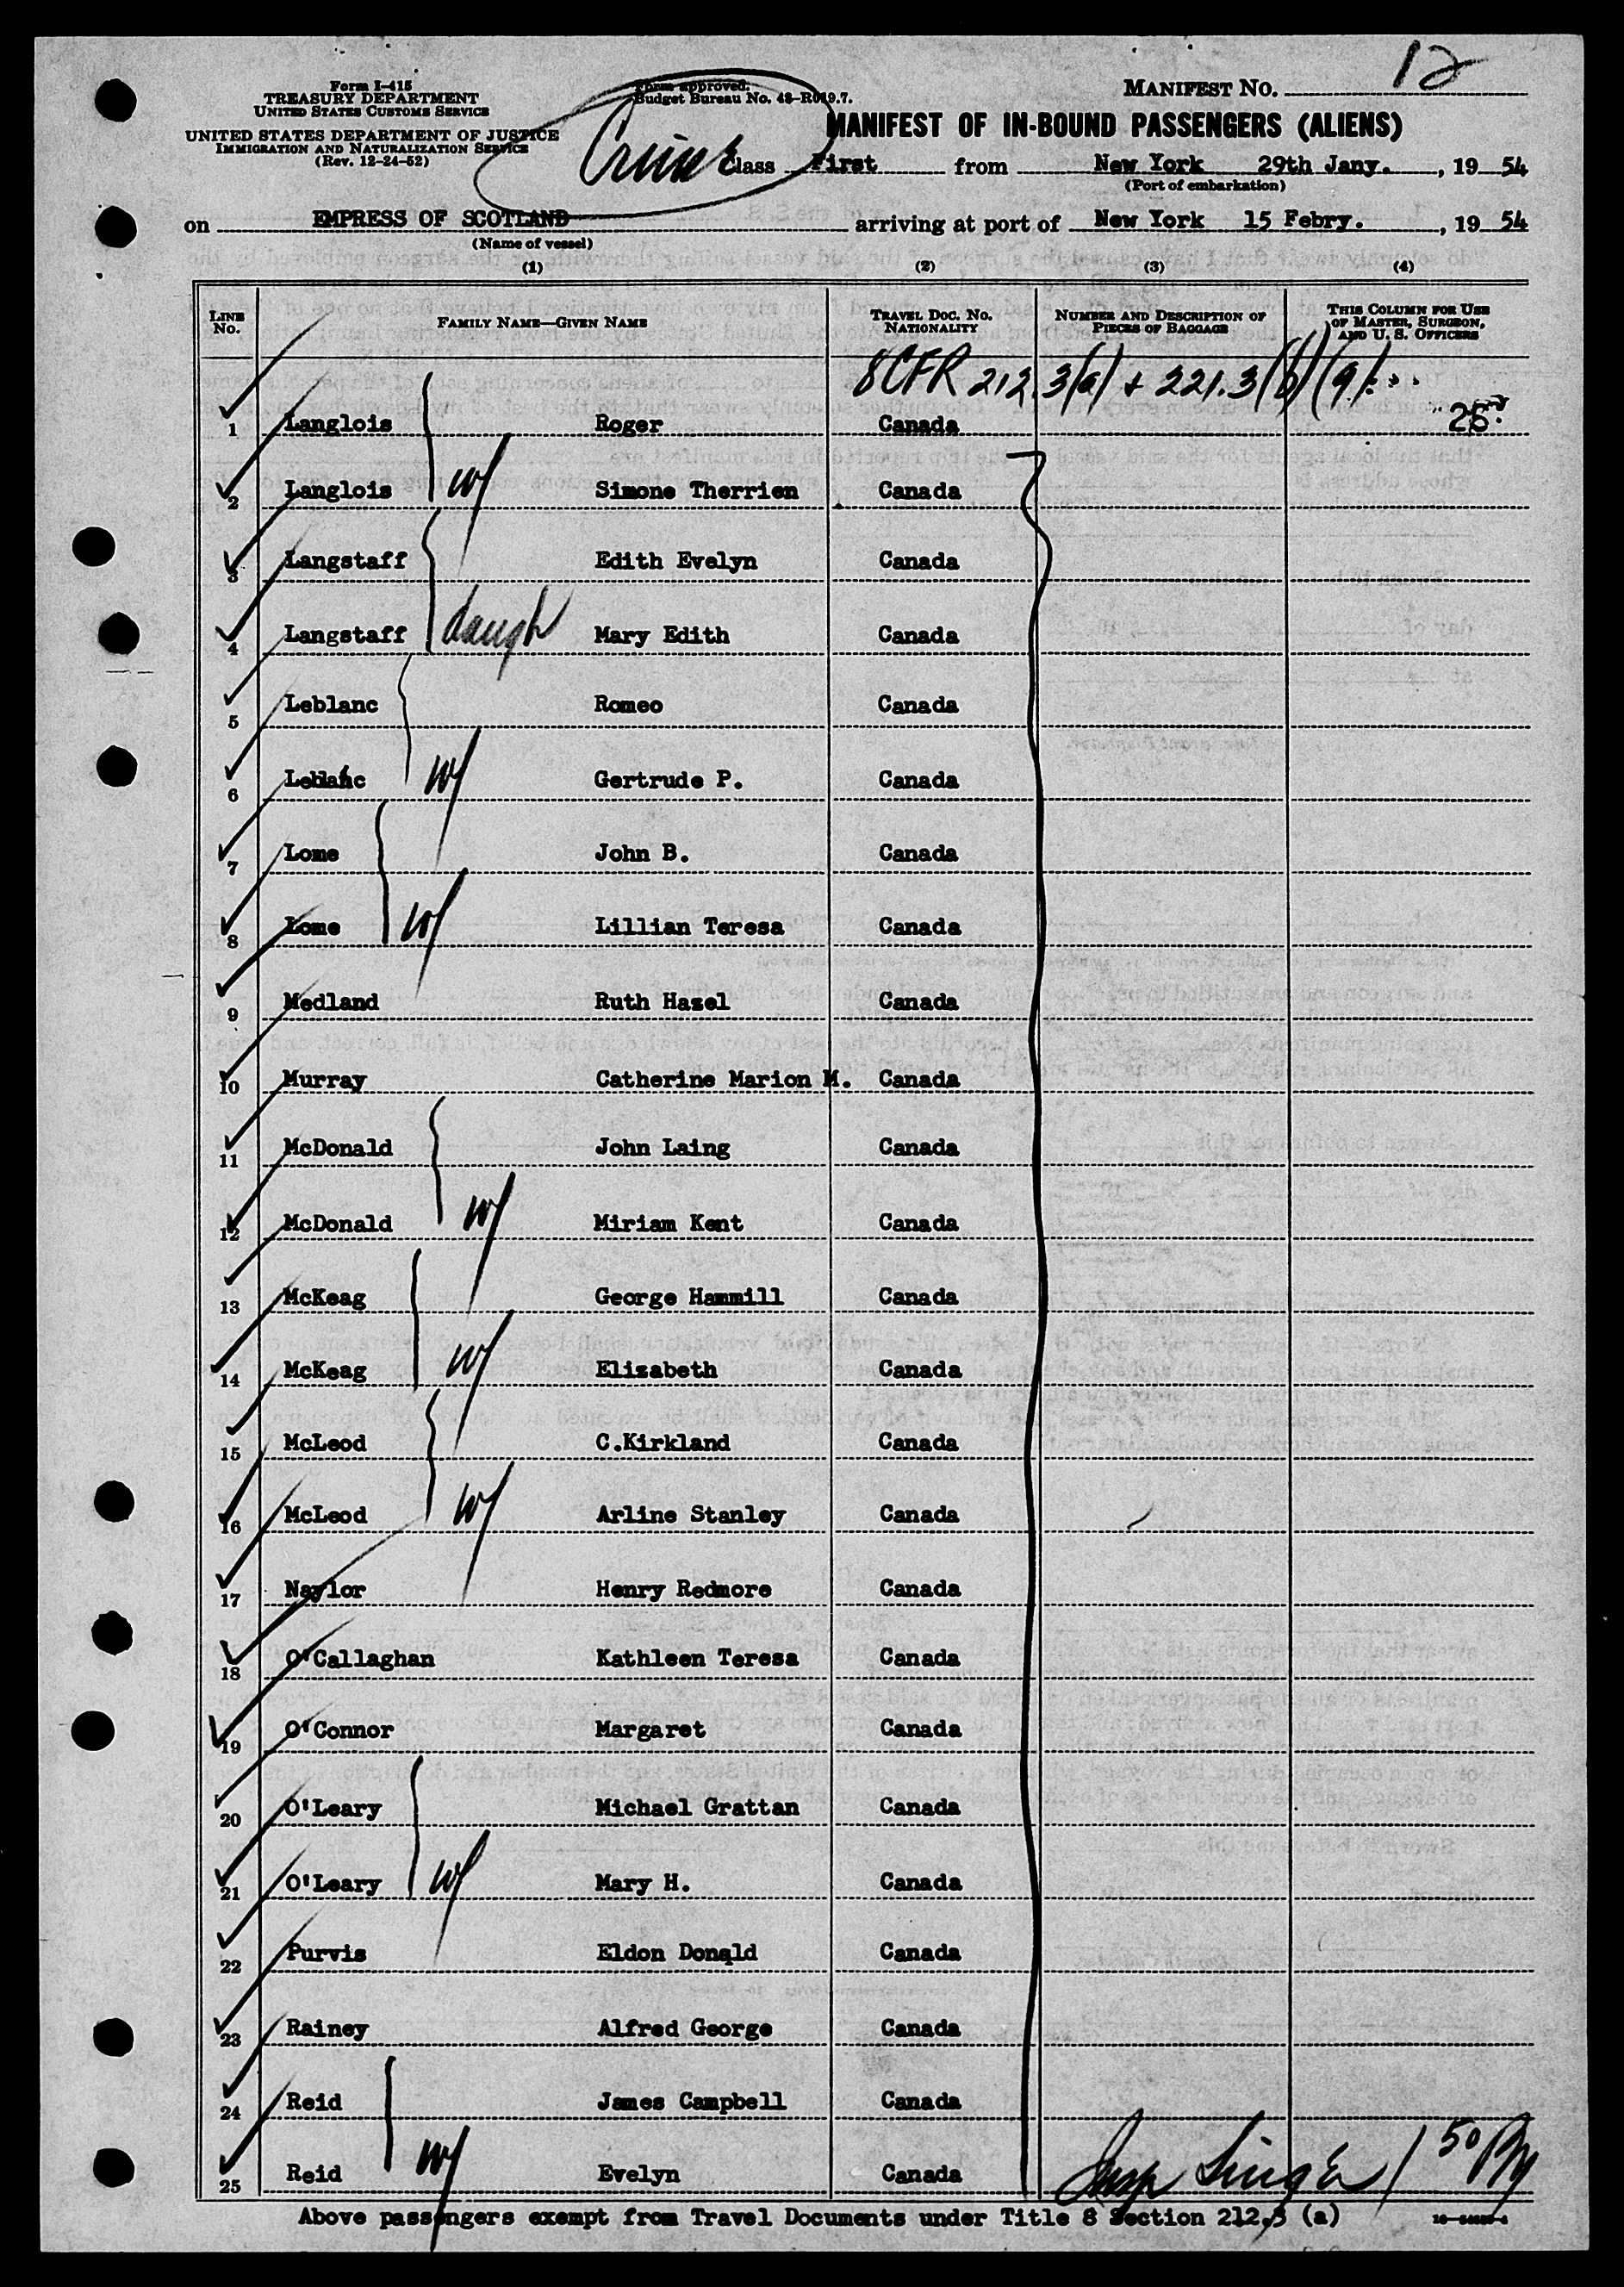 12
Form I-415
TREASURY DEPARTMENT
UNITED STATES CUSTOMS SERVICE
UNITED STATES DEPARTMENT OF JUSTICE
IMMIGRATION AND NATURALIZATION SERVICE
(Rev. 12-24-52)
Form approved.
Budget Bureau No. 43-R019.7.
MANIFEST NO.
MANIFEST OF IN-BOUND PASSENGERS (ALIENS)
Cruise
Class First from New York 29th Jany., 19 54
(Port of embarkation)
on EMPRESS OF SCOTLAND arriving at port of New York 15 Febry., 19 54
(Name of vessel)
(1) (2) (3) (4)
LINE NO. FAMILY NAME—GIVEN NAME TRAVEL DOC. NO. NATIONALITY NUMBER AND DESCRIPTION OF PIECES OF BAGGAGE THIS COLUMN FOR USE OF MASTER, SURGEON, AND U. S. OFFICERS
8 CFR 212.3(a) + 221.3(b)(9)
1 Langlois Roger Canada 25
2 Langlois w/ Simone Therrien Canada
3 Langstaff Edith Evelyn Canada
4 Langstaff daugh Mary Edith Canada
5 Leblanc Romeo Canada
6 Leblanc w/ Gertrude P. Canada
7 Lome John B. Canada
8 Lome w/ Lillian Teresa Canada
9 Medland Ruth Hazel Canada
10 Murray Catherine Marion M. Canada
11 McDonald John Laing Canada
12 McDonald w/ Miriam Kent Canada
13 McKeag George Hammill Canada
14 McKeag w/ Elizabeth Canada
15 McLeod C.Kirkland Canada
16 McLeod w/ Arline Stanley Canada
17 Naylor Henry Redmore Canada
18 O'Callaghan Kathleen Teresa Canada
19 O'Connor Margaret Canada
20 O'Leary Michael Grattan Canada
21 O'Leary w/ Mary H. Canada
22 Purvis Eldon Donald Canada
23 Rainey Alfred George Canada
24 Reid James Campbell Canada
25 Reid w/ Evelyn Canada
Insp Singer 50
Above passengers exempt from Travel Documents under Title 8 Section 212.3 (a)